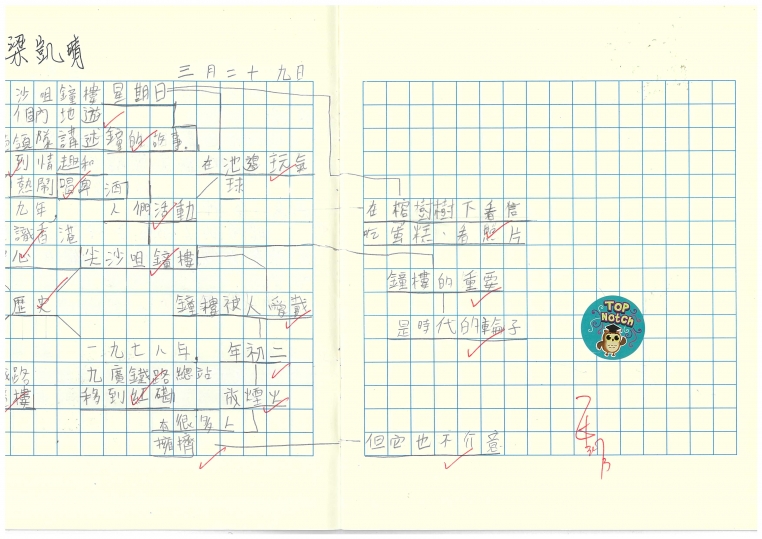 梁凱晴
三月二十九日
沙咀鐘樓 星期日
個內地遊
領隊講述鐘的故事。
到情趣和
在池邊玩氣
球
熱鬧唱
九年，
人們活動
識香港
心
尖沙咀鐘樓
歷史
鐘樓被人愛戴
一九七八年，
九廣鐵路總站
移到紅磡
年初二
放煙火
路
樓
有很多人
擁擠
在榕樹樹下看信
吃蛋糕、看照片
鐘樓的重要
是時代的輪子
但它也不介意
TOP
NOTCH